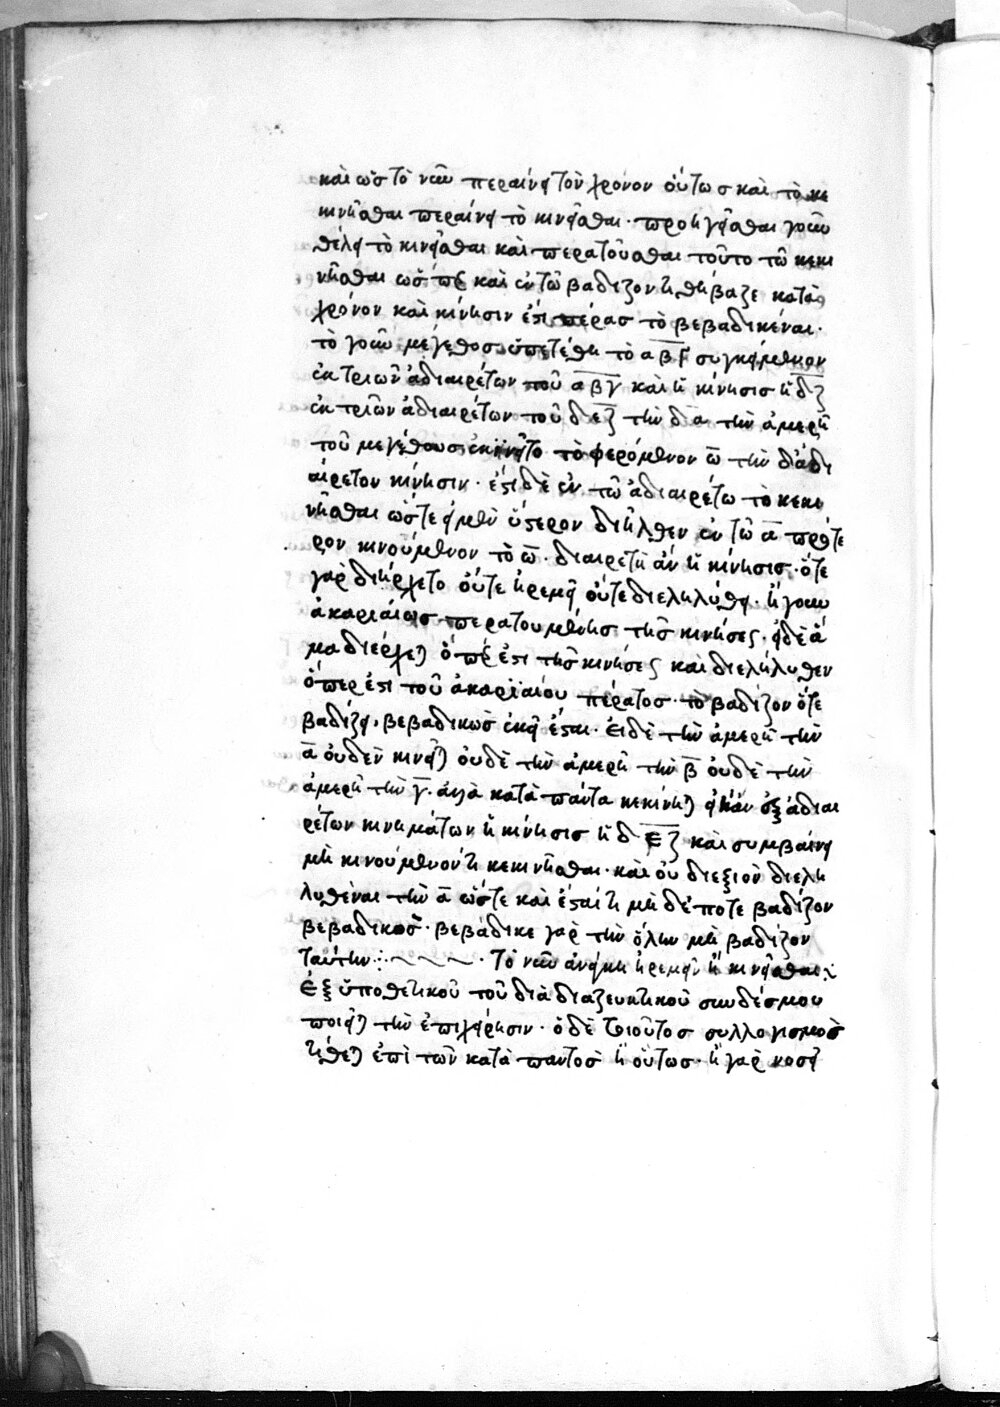 καὶ ὡς τὸ νῦν περαίνει τὸν χρόνον οὕτως καὶ τὸ κε
κινῆσθαι περαίνει τὸ κινεῖσθαι· προηγεῖσθαι γοῦν
θέλει τὸ κινεῖσθαι καὶ περατοῦσθαι τοῦτο τῶ κεκι
νῆσθαι ὥσπερ καὶ ἐν τῶ βαδίζον θήβαζε κατὰ
χρόνον καὶ κίνησιν ἐστι πέρας τὸ βεβαδικέναι·
τὸ γοῦν μέγεθος ὑπετέθη τὸ αβγ συγκείμενον
ἐκ τριῶν ἀδιαιρέτων τοῦ αβγ καὶ ἡ κίνησις ἡ δζ
ἐκ τριῶν ἀδιαιρέτων τοῦ δεζ τὴν δὲ α τὴν ἀμερῆ
τοῦ μεγέθους ἐκινεῖτο τὸ φερόμενον ω τὴν δ ἀδι
αίρετον κίνησιν· ἐστι δὲ ἐν τῶ ἀδιαιρέτω τὸ κεκι
νῆσθαι ὥστε εἰ μὲν ὕστερον διῆλθεν ἐν τῶ α πρότε
ρον κινούμενον τὸ ω· διαιρετὴ ἂν ἡ κίνησις· ὅτε
γὰρ διήρχετο οὔτε ἠρεμεῖ οὔτε διεληλύθει· ἤγουν
ἀκαριαίως περατουμένης τῆς κινήσεως· εἰ δὲ ἅ
μα διέρχεται ὅπερ ἐστι τῆς κινήσεως καὶ διελήλυθεν
ὅπερ ἐστι τοῦ ἀκαριαίου πέρατος τὸ βαδίζον ὅτε
βαδίζει, βεβαδικὼς ἐκεῖ ἔσται· εἰ δὲ τὴν ἀμερῆ τὴν
α οὐδὲν κινεῖται οὐδὲ τὴν ἀμερῆ τὴν β οὐδὲ τὴν
ἀμερῆ τὴν γ· ἀλλὰ κατὰ πάντα κεκίνηται εἴη ἂν ἐξ ἀδιαι
ρέτων κινημάτων ἡ κίνησις ἡ δεζ καὶ συμβαίνει
μὴ κινούμενόν τι κεκινῆσθαι· καὶ οὐ διεξιὸν διελη
λυθέναι τὴν α ὥστε καὶ ἔσται τι μηδέποτε βαδίζον
βεβαδικός· βεβάδικε γὰρ τὴν ὅλην μὴ βαδίζον
ταύτην· Τὸ νῦν ἀνάγκη ἠρεμεῖν ἢ κινεῖσθαι
Ἐξ ὑποθετικοῦ τοῦ διὰ διαζευκτικοῦ συνδέσμου
ποιεῖται τὴν ἐπιχείρησιν· ὁ δὲ τοιοῦτος συλλογισμὸς
τίθεται ἐπὶ τῶν κατὰ παντὸς ἢ οὕτως· ἢ γὰρ νοσεῖ